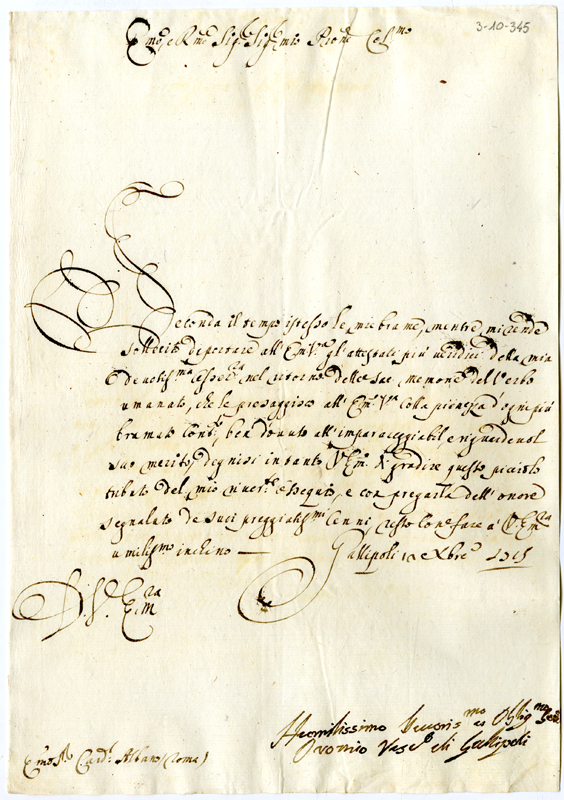 3-10-345
Emo e Rmo Sig.r Sig.r mio Pron.e Col.mo
Seconda il tempo istesso le mie brame, mentre mi rende
sollecito de portare all' Em.V.a gl'attestati più veridici della mia
devotiss.ma nel ritorno delle sac memorie del Verbo
umanato, che le presaggisco all' Em.V.a colla pienezza d'ogni più
bramato Cont.o, ben dovuto all' impareggiabil, e riguardevol
suo merito, degnisi intanto V.Em. gradire questo picciolo
tributo del mio river.e ossequio, e con pregarla dell' onore
segnalato de suoi preggiatiss.mi cenni resto con fare a V.Em.za
umiliss.mo inchino — Gallipoli Xbre
D. V. Em.za
Humilissimo Devotis.mo et Oblig.mo Ser.e
Oronzio Vesc.o di Gallipoli
Emo S.r Card.l Albano (Roma)